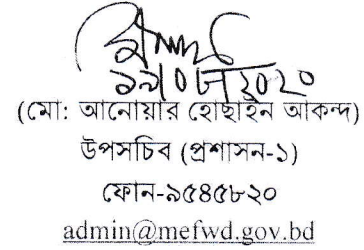 ১৯/০৮/২০২০
(মো: আনোয়ার হোছাইন আকন্দ)
উপসচিব (প্রশাসন-১)
ফোন-৯৫৪৫৮২০
admin@mefwd.gov.bd